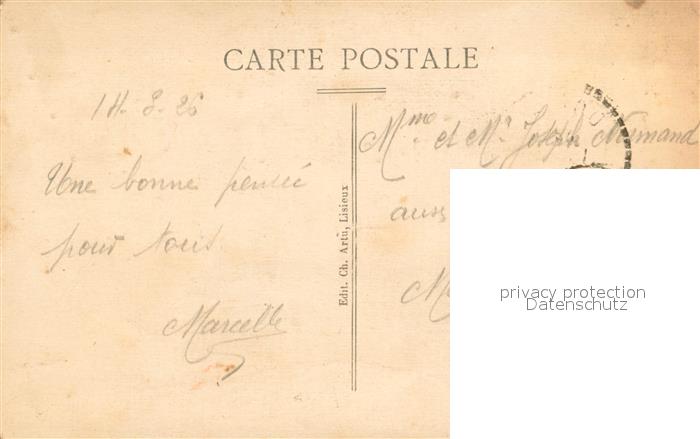 CARTE POSTALE
14-8-26
Une bonne pensée
pour tous.
Marcelle
Edit. Ch. Artù, Lisieux
Mme et Mr Joseph
privacy protection
Datenschutz